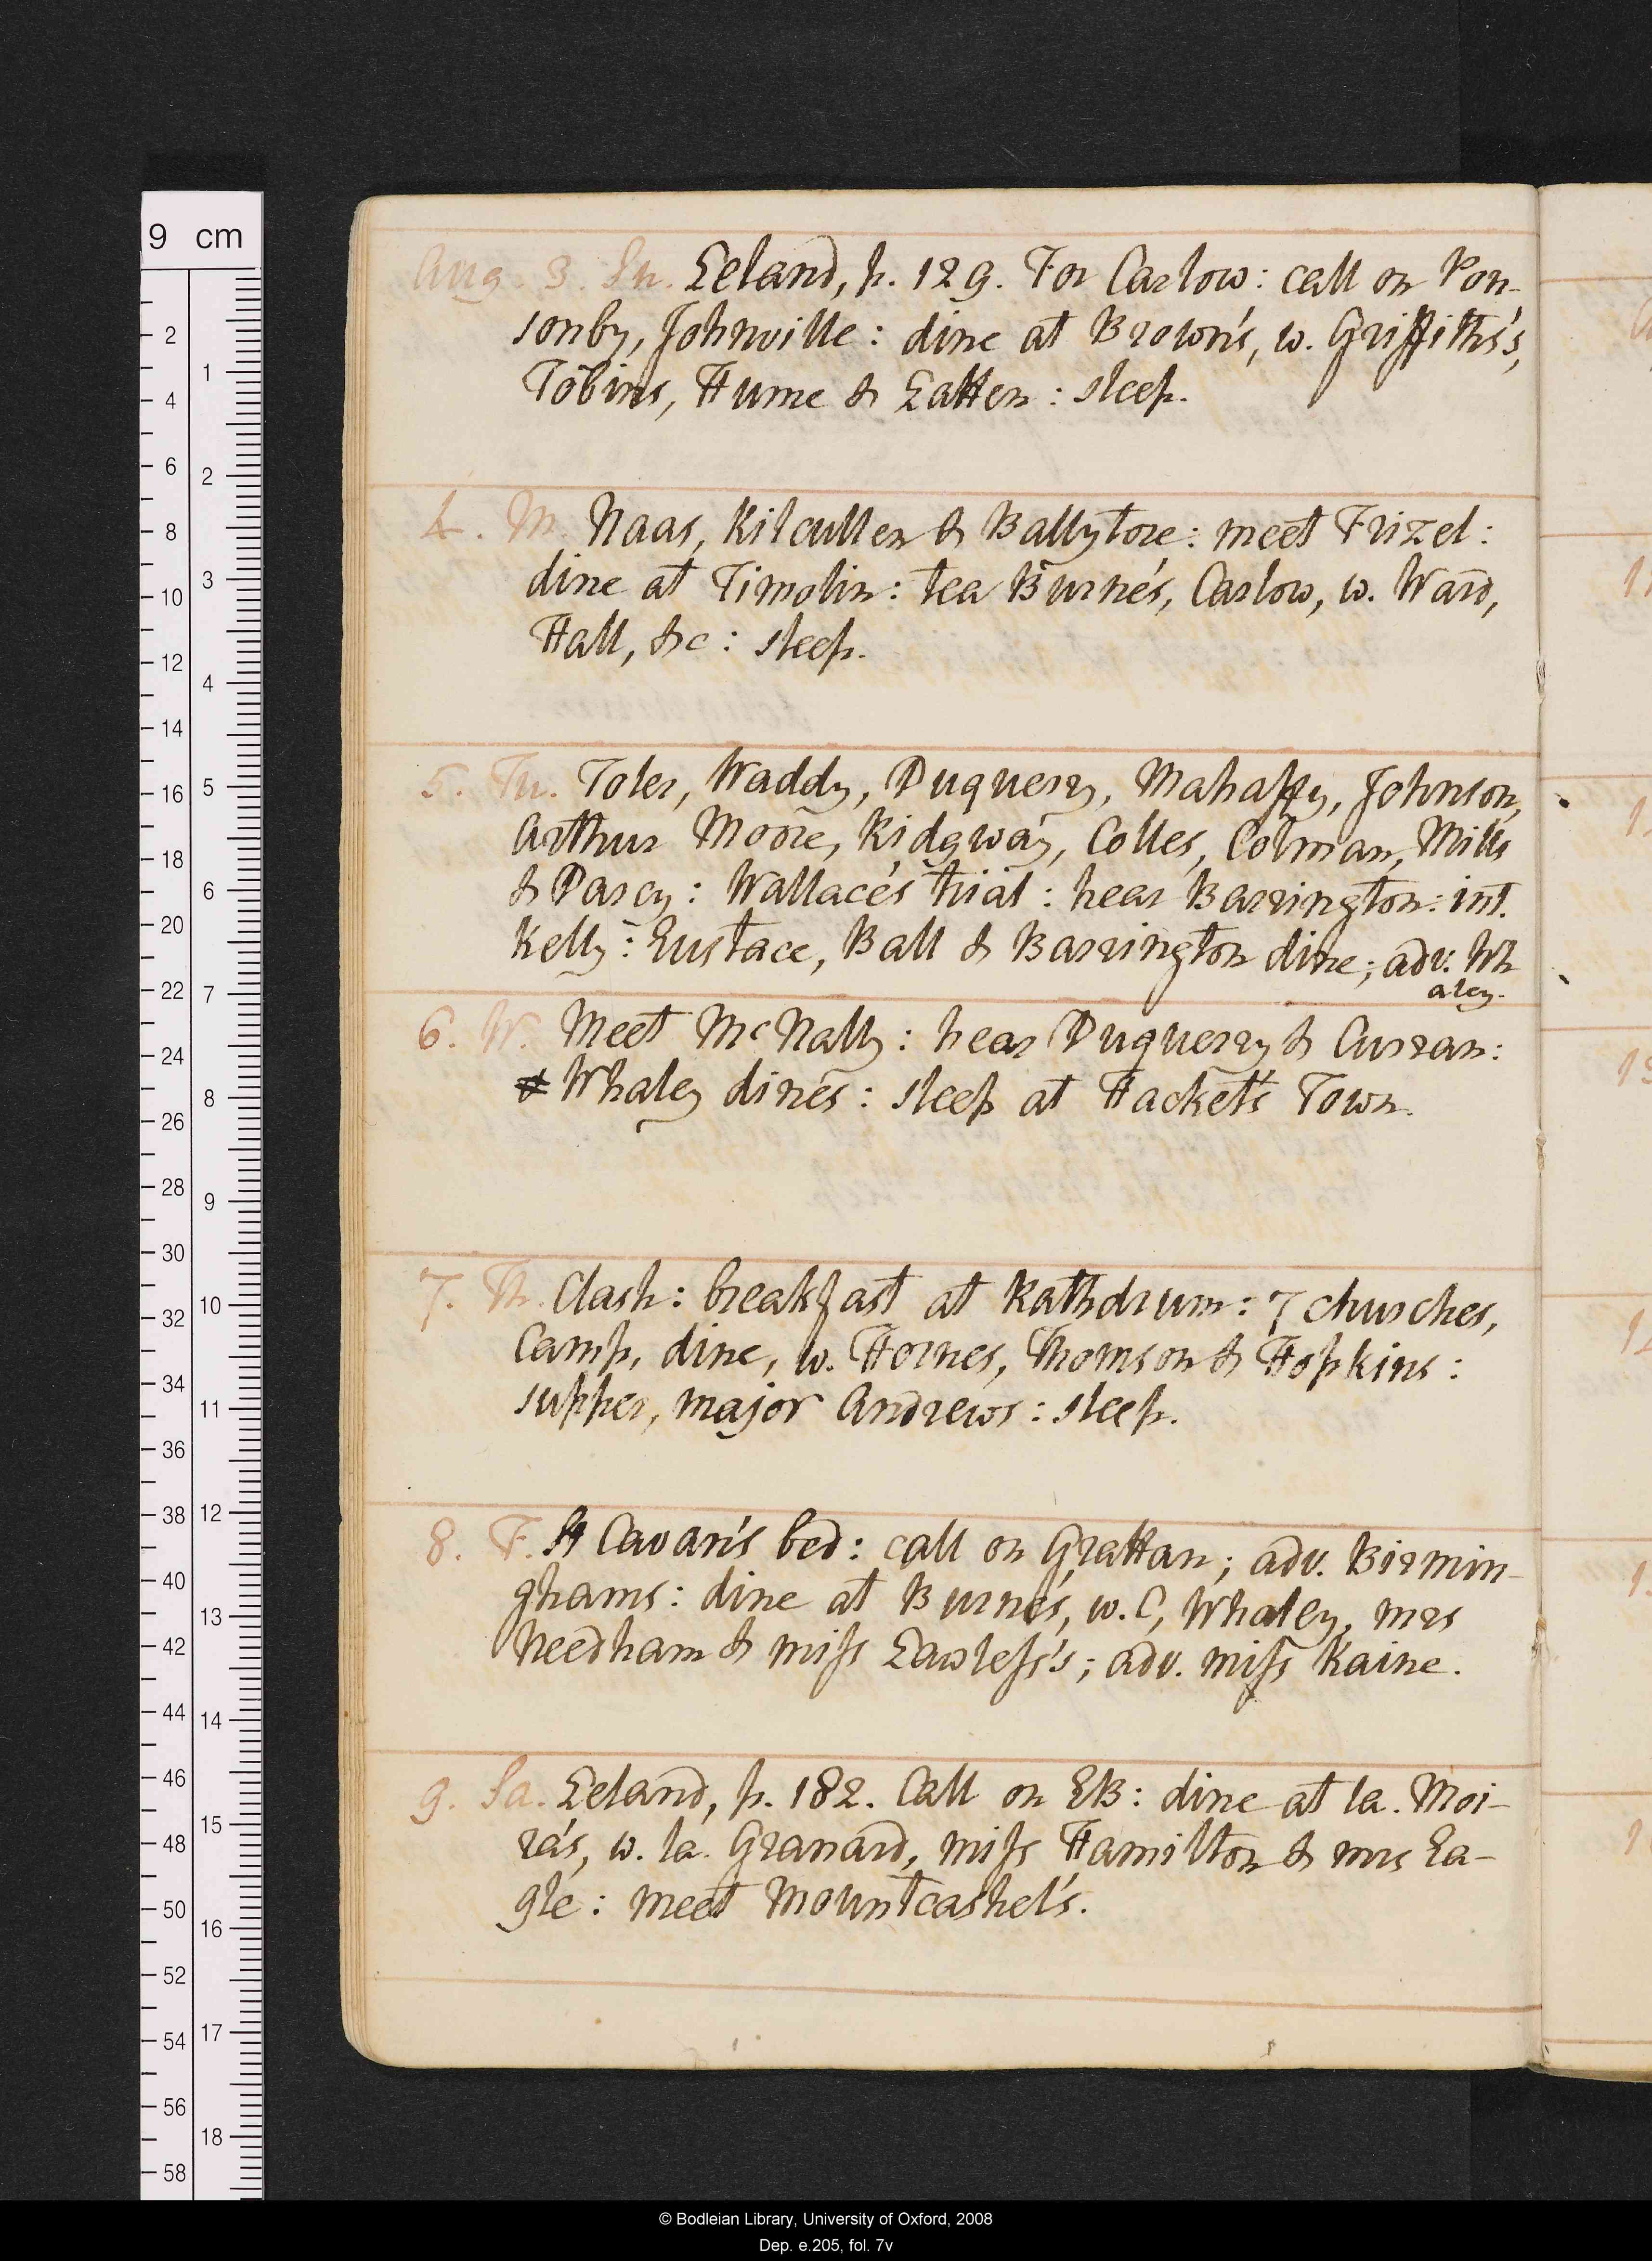 Aug. 3. Su. Leland, p. 129. For Carlow: call on Pon-
sonby, Johnville: dine at Brown's, w. Griffiths's,
Tobins, Hume & Latten: sleep.
4. M. Naas, Kilcullen & Ballytore: meet Frizel:
dine at Timolin: tea Burne's, Carlow, w. Ward,
Hall, &c: sleep.
5. Tu. Toler, Waddy, Duquerry, Mahaffy, Johnson,
Arthur Moore, Ridgway, Colles, Colman, Mills
& Darcy: Wallace's trial: hear Barrington: int.
Kelly: Eustace, Ball & Barrington dine; adv. Wh
aley.
6. W. Meet McNally: hear Duquerry & Curran:
Whaley dines: sleep at Hacket's Town.
7. Th. Clash: breakfast at Rathdrum: 7 churches,
Camp, dine, w. Hornes, Thomson & Hopkins:
supper, major Andrews: sleep.
8. F. Cavan's bed: call on Grattan; adv. Birmin-
ghams: dine at Burne's, w. C, Whaley, mrs
Needham & miss Lawless's; adv. miss Kaine.
9. Sa. Leland, p. 182. Call on EB: dine at la. Moi-
ra's, w. la. Granard, miss Hamilton & mrs Ea-
gle: meet Mountcashel's.
9 cm
2
4
6
8
10
12
14
16
18
20
22
24
26
28
30
32
34
36
38
40
42
44
46
48
50
52
54
56
58
1
2
3
4
5
6
7
8
9
10
11
12
13
14
15
16
17
18
© Bodleian Library, University of Oxford, 2008
Dep. e.205, fol. 7v